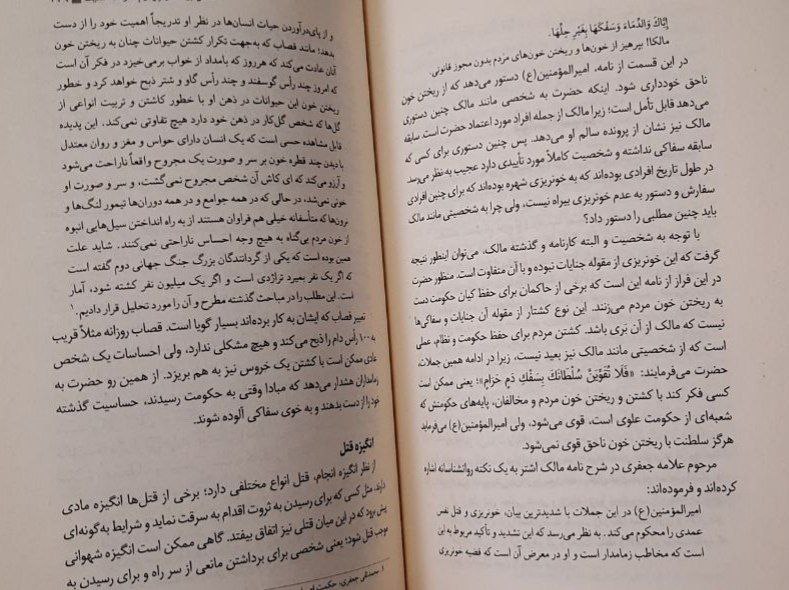 إِیَّاكَ وَالدِّمَاءَ وَسَفْكَهَا بِغَيْرِ حِلِّهَا.
مالکا! بپرهیز از خون‌ها و ریختن خون‌های مردم بدون مجوز قانونی.
در این قسمت از نامه، امیرالمؤمنین(ع) دستور می‌دهد که از ریختن خون
ناحق خودداری شود. اینکه حضرت به شخصی مانند مالک چنین دستوری
می‌دهد قابل تأمل است؛ زیرا مالک از جمله افراد مورد اعتماد حضرت است. سابقه
مالک نیز نشان از پرونده سالم او می‌دهد. پس چنین دستوری برای کسی که
سابقه سفاکی نداشته و شخصیت کاملاً مورد تأییدی دارد عجیب به نظر می‌رسد.
در طول تاریخ افرادی بوده‌اند که به خونریزی شهره بوده‌اند که برای چنین افرادی
سفارش و دستور به عدم خونریزی بیراه نیست، ولی چرا به شخصیتی مانند مالک
باید چنین مطلبی را دستور داد؟
با توجه به شخصیت و البته کارنامه و گذشته مالک، می‌توان اینطور نتیجه
گرفت که این خونریزی از مقوله جنایات نبوده و با آن متفاوت است. منظور حضرت
در این فراز از نامه این است که برخی از حاکمان برای حفظ کیان حکومت دست
به ریختن خون مردم می‌زنند. این نوع کشتار از مقوله آن جنایات و سفاکی‌ها
نیست که مالک از آن بَری باشد. کشتن مردم برای حفظ حکومت و نظام، عملی
است که از شخصیتی مانند مالک نیز بعید نیست، زیرا در ادامه همین جملات،
حضرت می‌فرمایند: «فَلَا تُقَوِّيَنَّ سُلْطَانَكَ بِسَفْكِ دَمٍ حَرَامٍ»؛ یعنی ممکن است
کسی فکر کند با کشتن و ریختن خون مردم و مخالفان، پایه‌های حکومتش که
شعبه‌ای از حکومت علوی است، قوی می‌شود، ولی امیرالمؤمنین(ع) می‌فرماید
هرگز سلطنت با ریختن خون ناحق قوی نمی‌شود.
مرحوم علامه جعفری در شرح نامه مالک اشتر به یک نکته روانشناسانه اشاره
کرده‌اند و فرموده‌اند:
امیرالمؤمنین(ع) در این جملات با شدیدترین بیان، خونریزی و قتل نفس
عمدی را محکوم می‌کند. به نظر می‌رسد که این تشدید و تأکید مربوط به این
است که مخاطب زمامدار است و او در معرض آن است که قضیه خونریزی
و از پای‌درآوردن حیات انسان‌ها در نظر او تدریجاً اهمیت خود را از دست
بدهد؛ مانند قصاب که به‌جهت تکرار کشتن حیوانات چنان به ریختن خون
آنان عادت می‌کند که هرروز که بامداد از خواب برمی‌خیزد در فکر آن است
که امروز چند رأس گوسفند و چند رأس گاو و شتر ذبح خواهد کرد و خطور
ریختن خون این حیوانات در ذهن او با خطور کاشتن و تربیت انواعی از
گل‌ها که شخص گل‌کار در ذهن خود دارد هیچ تفاوتی نمی‌کند. این پدیده
قابل مشاهده حسی است که یک انسان دارای حواس و مغز و روان معتدل
با دیدن چند قطره خون بر سر و صورت یک مجروح واقعاً ناراحت می‌شود
و آرزو می‌کند که ای کاش آن شخص مجروح نمی‌گشت، و سر و صورت او
خونی نمی‌شد، در حالی که در همه جوامع و در همه دوران‌ها تیمور لنگ‌ها و
نرون‌ها که متأسفانه خیلی هم فراوان هستند از به راه انداختن سیل‌هایی انبوه
از خون مردم بی‌گناه به هیچ وجه احساس ناراحتی نمی‌کنند. شاید علت
همین بوده است که یکی از گردانندگان بزرگ جنگ جهانی دوم گفته است
که اگر یک نفر بمیرد تراژدی است و اگر یک میلیون نفر کشته شود، آمار
است. این مطلب را در مباحث گذشته مطرح و آن را مورد تحلیل قرار دادیم.۱
تعبیر قصاب که ایشان به کار برده‌اند بسیار گویا است. قصاب روزانه مثلاً قریب
به ۱۰۰ رأس دام را ذبح می‌کند و هیچ مشکلی ندارد، ولی احساسات یک شخص
عادی ممکن است با کشتن یک خروس نیز به هم بریزد. از همین رو حضرت به
زمامداران هشدار می‌دهد که مبادا وقتی به حکومت رسیدند، حساسیت گذشته
خود را از دست بدهند و به خوی سفاکی آلوده شوند.
انگیزه قتل
از نظر انگیزه انجام، قتل انواع مختلفی دارد؛ برخی از قتل‌ها انگیزه مادی
دارند، مثل کسی که برای رسیدن به ثروت اقدام به سرقت نماید و شرایط به‌گونه‌ای
پیش برود که در این میان قتلی نیز اتفاق بیفتد. گاهی ممکن است انگیزه شهوانی
موجب قتل شود؛ یعنی شخصی برای برداشتن مانعی از سر راه و برای رسیدن به
۱. محمدتقی جعفری، حکمت